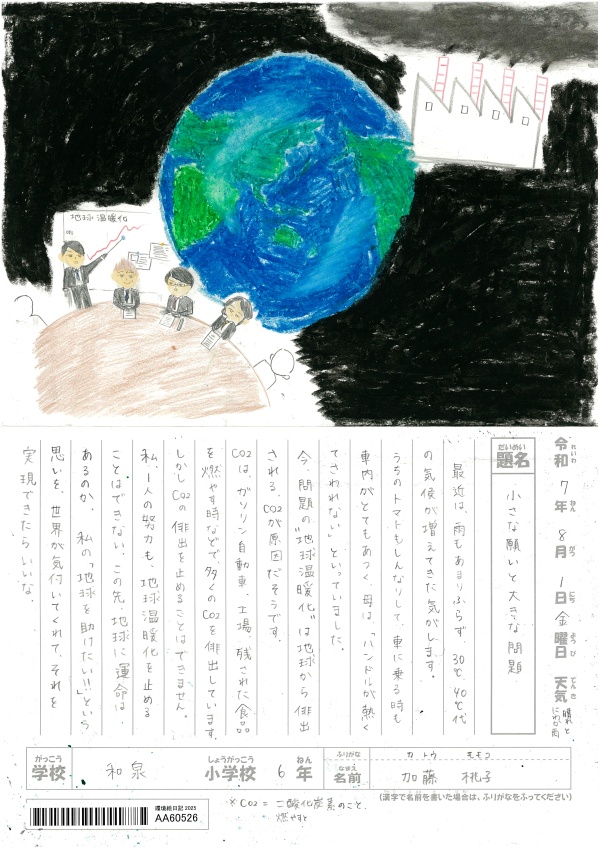 地球温暖化
令和7年8月1日金曜日 天気 晴れとにわか雨
れいわ ねん がつ にち ようび てんき
題名 小さな願いと大きな問題
だいめい
最近は、雨もあまりふらず、30℃、40℃代
の気候が増えてきた気がします。
うちのトマトもしんなりして、車に乗る時も
車内がとてもあつく、母は、「ハンドルが熱く
てさわれない」といっていました。
今、問題の"地球温暖化"は地球から排出
される、CO2が原因だそうです。
CO2は、ガソリン自動車、工場、残された食品
を燃やす時などで、多くのCO2を排出しています。
しかしCO2の排出を止めることはできません。
私、1人の努力も、地球温暖化を止める
ことはできない。この先、地球に運命は、
あるのか、私の「地球を助けたい!!」という
思いを、世界が気付いてくれて、それを
実現できたらいいな。
がっこう しょうがっこう ねん ふりがな カトウ モモコ
学校 和泉 小学校 6年 名前 加藤 桃子
なまえ
(漢字で名前を書いた場合は、ふりがなをふってください)
環境絵日記 2025
AA60526
※CO2=二酸化炭素のこと.
燃やすと